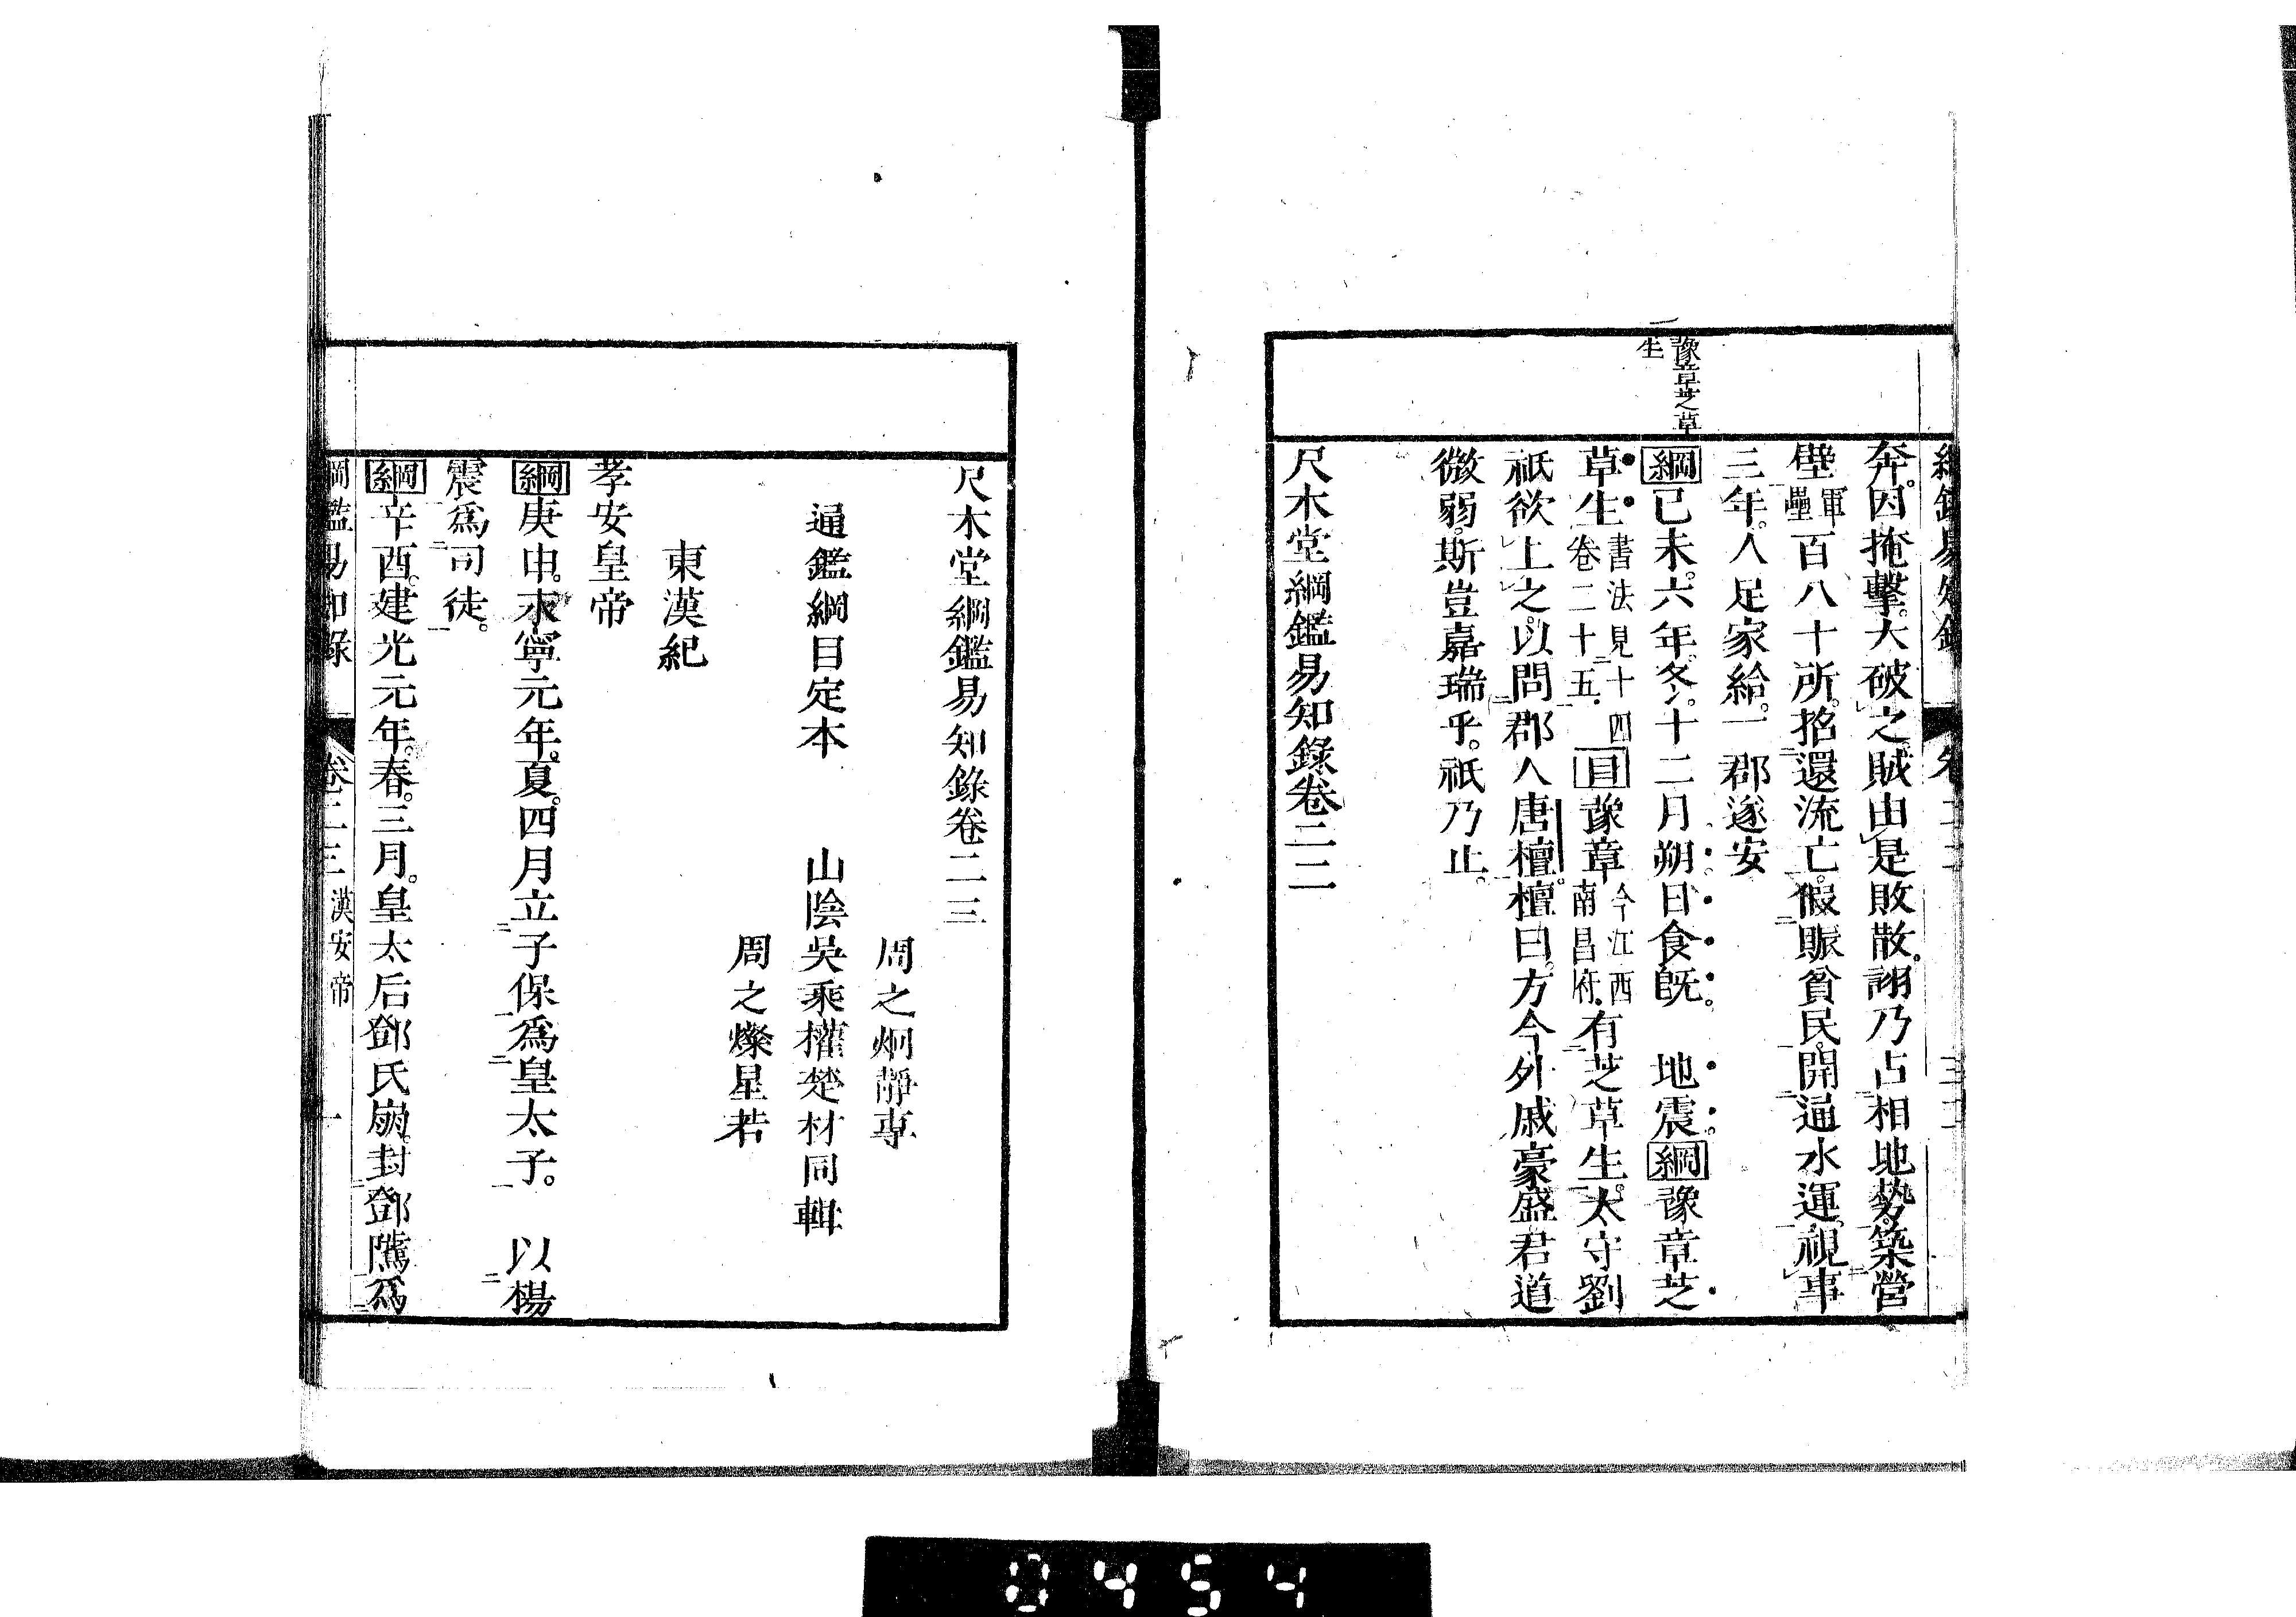 豫章芝草
生
奔。因掩擊。大破之賊由是敗散。詡乃占相地勢。築營
壁軍壘百八十所。招還流亡。假賑貧民。開通水運。視事
三年。人足家給。一郡遂安
綱已未。六年。冬。十二月朔日食旣 地震。綱豫章芝
草生書法見十四卷二十五目豫章今江西南昌府有芝草生。太守劉
祇欲上之。以問郡人唐檀。檀曰。方今外戚豪盛君道
微弱。斯豈嘉瑞乎。祇乃止。
尺木堂綱鑑易知錄卷二二
尺木堂綱鑑易知錄卷二三
周之炯靜專
通鑑綱目定本 山陰吳乘權楚材同輯
周之燦星若
東漢紀
孝安皇帝
綱庚申。永寧元年。夏。四月立子保爲皇太子。 以楊
震爲司徒。
綱辛酉。建光元年。春。三月。皇太后鄧氏崩。封鄧隲爲
綱鑑易知錄 卷二三 漢安帝 一
0454